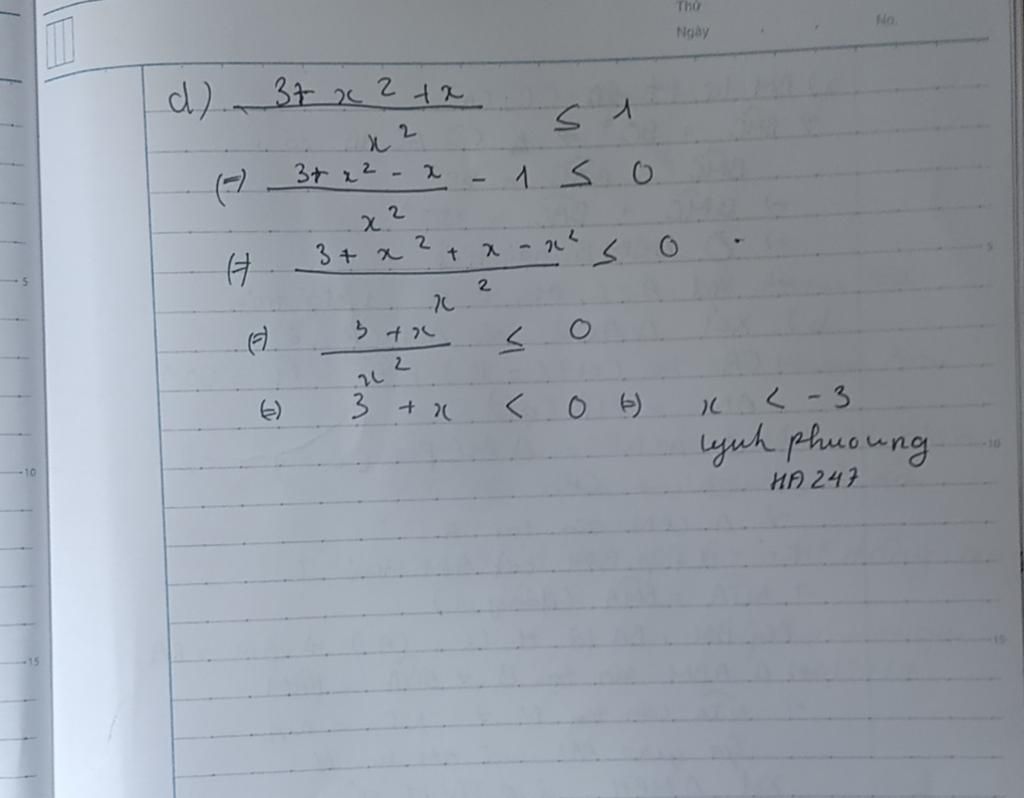 Thứ
Ngày No.
d) \frac{3+x^2+x}{x^2} ≤ 1
(=) \frac{3+x^2-x}{x^2} - 1 ≤ 0
(=) \frac{3+x^2+x-x^2}{x^2} ≤ 0
(=) \frac{3+x}{x^2} ≤ 0
(=) 3 + x < 0 (=) x < -3
lynh phuoung
HA247
5
10
15
5
10
15